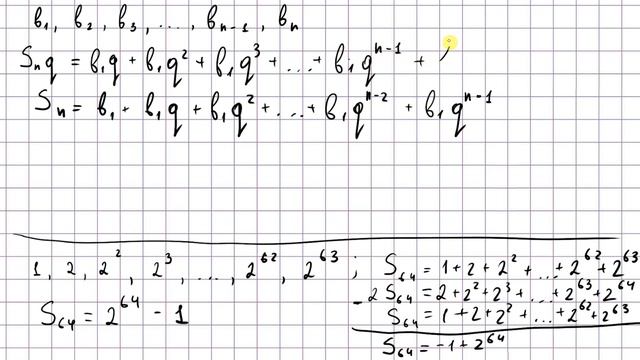 b₁, b₂, b₃, ..., bₙ₋₁, bₙ
Sₙq = b₁q + b₁q² + b₁q³ + ... + b₁qⁿ⁻¹ +
Sₙ = b₁ + b₁q + b₁q² + ... + b₁qⁿ⁻² + b₁qⁿ⁻¹
1, 2, 2², 2³, ..., 2⁶², 2⁶³ ;
S₆₄ = 2⁶⁴ - 1
S₆₄ = 1 + 2 + 2² + ... + 2⁶² + 2⁶³
2 S₆₄ = 2 + 2² + 2³ + ... + 2⁶³ + 2⁶⁴
- S₆₄ = 1 + 2 + 2² + ... + 2⁶² + 2⁶³
S₆₄ = -1 + 2⁶⁴